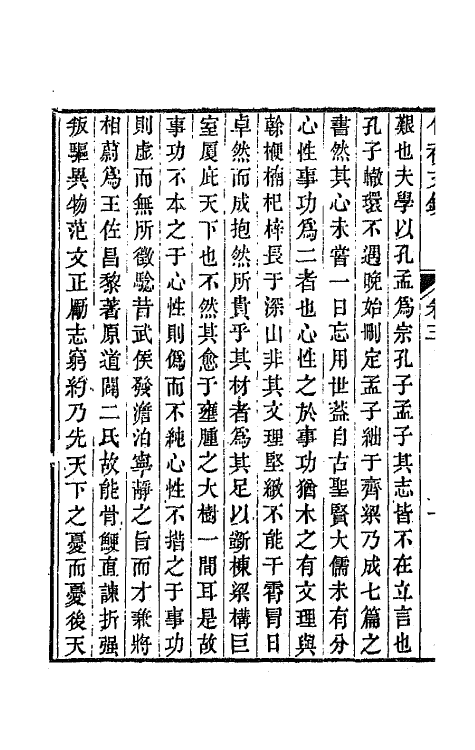 卷三
艱也夫學以孔孟爲宗孔子孟子其志皆不在立言也
孔子轍環不遇晚始刪定孟子絀于齊梁乃成七篇之
書然其心未嘗一日忘用世葢自古聖賢大儒未有分
心性事功爲二者也心性之於事功猶木之有文理與
榦梗楠杞梓長于深山非其文理堅緻不能干霄冐日
卓然而成抱然所貴乎其材者爲其足以斵棟梁構巨
室厦庇天下也不然其愈于壅腫之大樹一間耳是故
事功不本之于心性則僞而不純心性不措之于事功
則虛而無所徵驗昔武侯發澹泊寧靜之旨而才兼將
相蔚爲王佐昌黎著原道闢二氏故能骨鯁直諫折强
叛驅異物范文正勵志窮約乃先天下之憂而憂後天